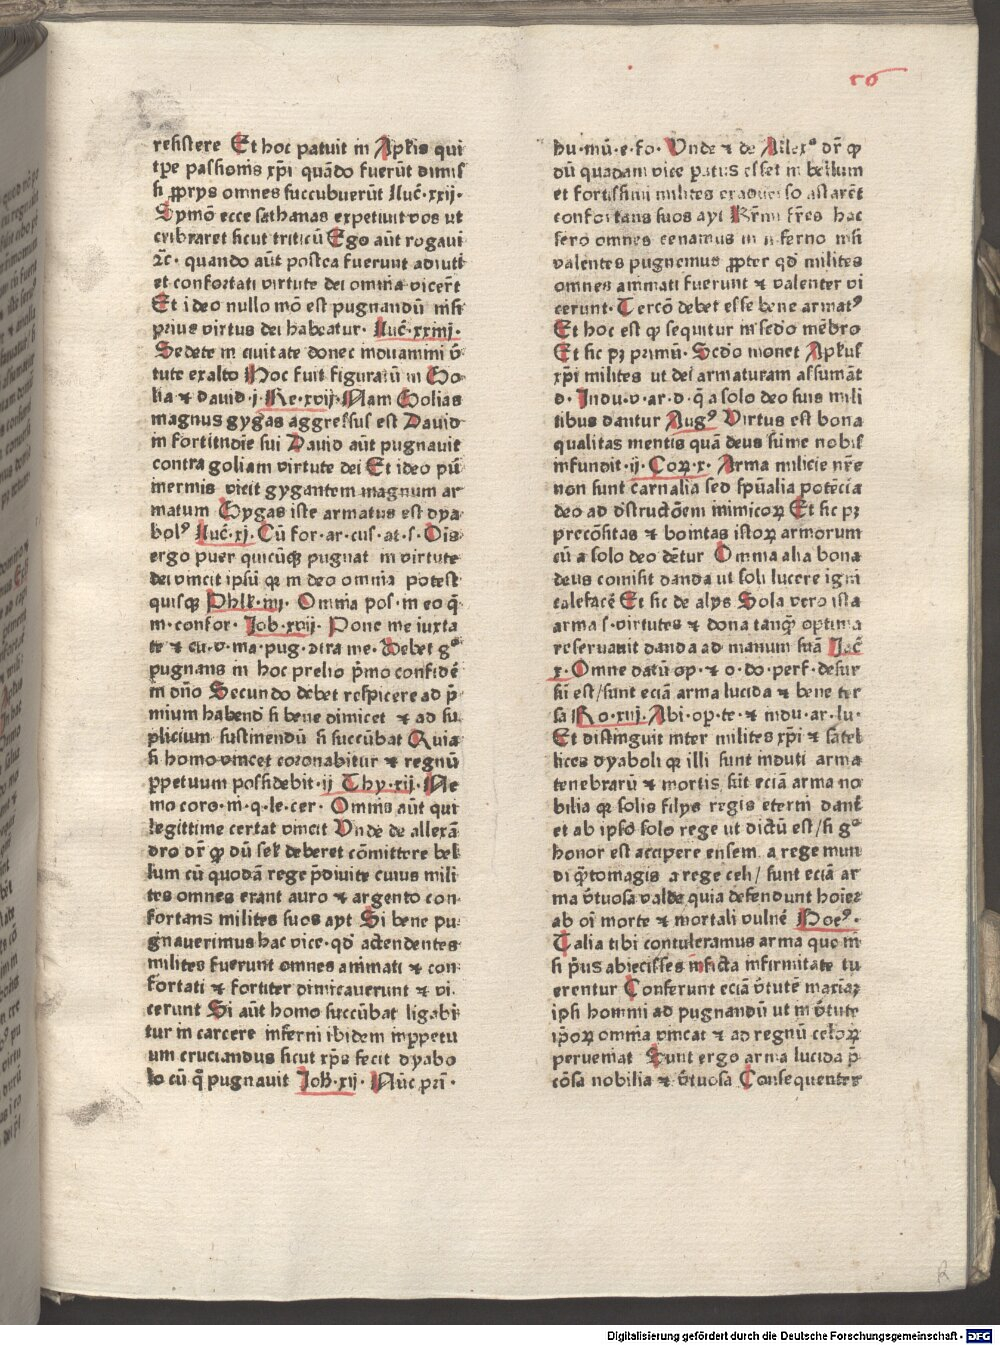 56
resistere Et hoc patuit in Aplis qui
tp̄e passionis xp̄i quādo fuerūt dimis
si ꝓprys omnes succubuerūt Luc̄·xxij·
Symō ecce sathanas expetiuit vos ut
cribraret sicut triticū Ego aūt rogaui
⁊c̄· quando aūt postea fuerunt adiuti
et confortati virtute dei omnia vicert̄
Et ideo nullo mō est pugnandū nisi
prius virtus dei habeatur· Luc̄·xxiiij·
Sedete in ciuitate donec induamini v̄
tute exalto Hoc fuit figuratū in Go
lia ⁊ dauid·j·Re·xvij·Nam Golias
magnus gygas aggressus est Dauid
in fortitudie sui Dauid aūt pugnauit
contra goliam virtute dei Et ideo pu̅
inermis vicit gygantem magnum ar
matum Gygas iste armatus est dya
bolꝰ Luc̄·xj·Cū for·ar·cus·at·s·Ois
ergo puer quicūqꝫ pugnat in virtute
dei vincit ipsū qꝛ in deo omnia potest
quisqꝫ Phlꝉ·iiij· Omnia pos·in eo q̄
m·confor· Job·xvij· Pone me iuxta
te ⁊ cu·v·ma·pug·ɔtra me·Debet gͦ
pugnans in hoc prelio pͥmo confidē
in dn̄o Secundo debet respicere ad p̄
mium habend̄ si bene dimicet ⁊ ad su
plicium sustinendū si succūbat Quia
si homo vincet coronabitur ⁊ regnū
ꝑpetuum possidebit·ij Thy·xij·Ne
mo coro·ni·q·le·cer· Omnis aūt qui
legittime certat vincit Vnde de allexā
dro dr̄ ꝙ dū sel̄ deberet cōmittere bel
lum cū quodā rege p̄diuite cuius mili
tes omnes erant auro ⁊ argento con
fortans milites suos ayt Si bene pu
gnauerimus hac vice·qd̄ actendentes
milites fuerunt omnes animati ⁊ con
fortati ⁊ fortiter dimicauerunt ⁊ vi
cerunt Si aūt homo succūbat ligabi
tur in carcere inferni ibidem inꝑpetu
um cruciandus sicut xp̄s fecit dyabo
lo cū q̄ pugnauit Joh̄·xij· Nūc pri̅·
hu·mū·e·fo· Vnde ⁊ de Allexͦ dr̄ ꝙ
dū quadam vice paratus esset in bellum
et fortissimi milites exaduerso astarēt
confortans suos ayt Kr̄mi fr̄es hac
sero omnes cenamus in inferno nisi
valentes pugnemus ꝓpter qd̄ milites
omnes animati fuerunt ⁊ valenter vi
cerunt·Tercō debet esse bene armatꝰ
Et hoc est ꝙ sequitur in sed̄o mēbro
Et sic pꝫ primū· Sed̄o monet Apl̄us
xp̄i milites ut dei armaturam assumāt
d·Indu·v·ar·d·q̄ a solo deo suis mili
tibus dantur Augꝰ Virtus est bona
qualitas mentis quā deus sūme nobis
infundit·ij·Coꝝ·x· Arma milicie nr̄e
non sunt carnalia sed spūalia potēcia
deo ad dstructōem inimicoꝝ Et sic pꝫ
precōsitas ⁊ bonitas istoꝝ armorum
cū a solo deo dētur Omnia alia bona
deus comisit danda ut soli lucere igni
calefacē Et sic de alys Sola vero ista
arma s·virtutes ⁊ dona tanq̄ optima
reseruauit danda ad manum suā Jac̄
x·Omne datū op·⁊ o·do·perf·desur
sū est/sunt eciā arma lucida ⁊ bene ter
sa Ro·xiij·Abi·op·te·⁊ indu·ar·lu·
Et distinguit inter milites xp̄i ⁊ satel
lices dyaboli qꝛ illi sunt induti arma
tenebrarū ⁊ mortis sūt eciā arma no
bilia qꝛ solis filys regis eterni dant̄
et ab ipso solo rege ut dictū est/si gͦ
honor est accipere ensem a rege mun
di q̄tomagis a rege celi/ sunt eciā ar
ma v̄tuosa valde quia defendunt hoiēꝫ
ab oi morte ⁊ mortali vulne̅ Boeꝰ·
Talia tibi contuleramus arma que ni
si p̄us abiecisses inuicta infirmitate tu
erentur Conferunt eciā v̄tutē maximaꝫ
ipsi homini ad pugnandū ut in v̄tute
ip̄oꝝ omnia vincat ⁊ ad regnū celoꝝ
perueniat Sunt ergo arma lucida p̄
cōsa nobilia ⁊ v̄tuosa Consequenter
R
Digitalisierung gefördert durch die Deutsche Forschungsgemeinschaft - DFG